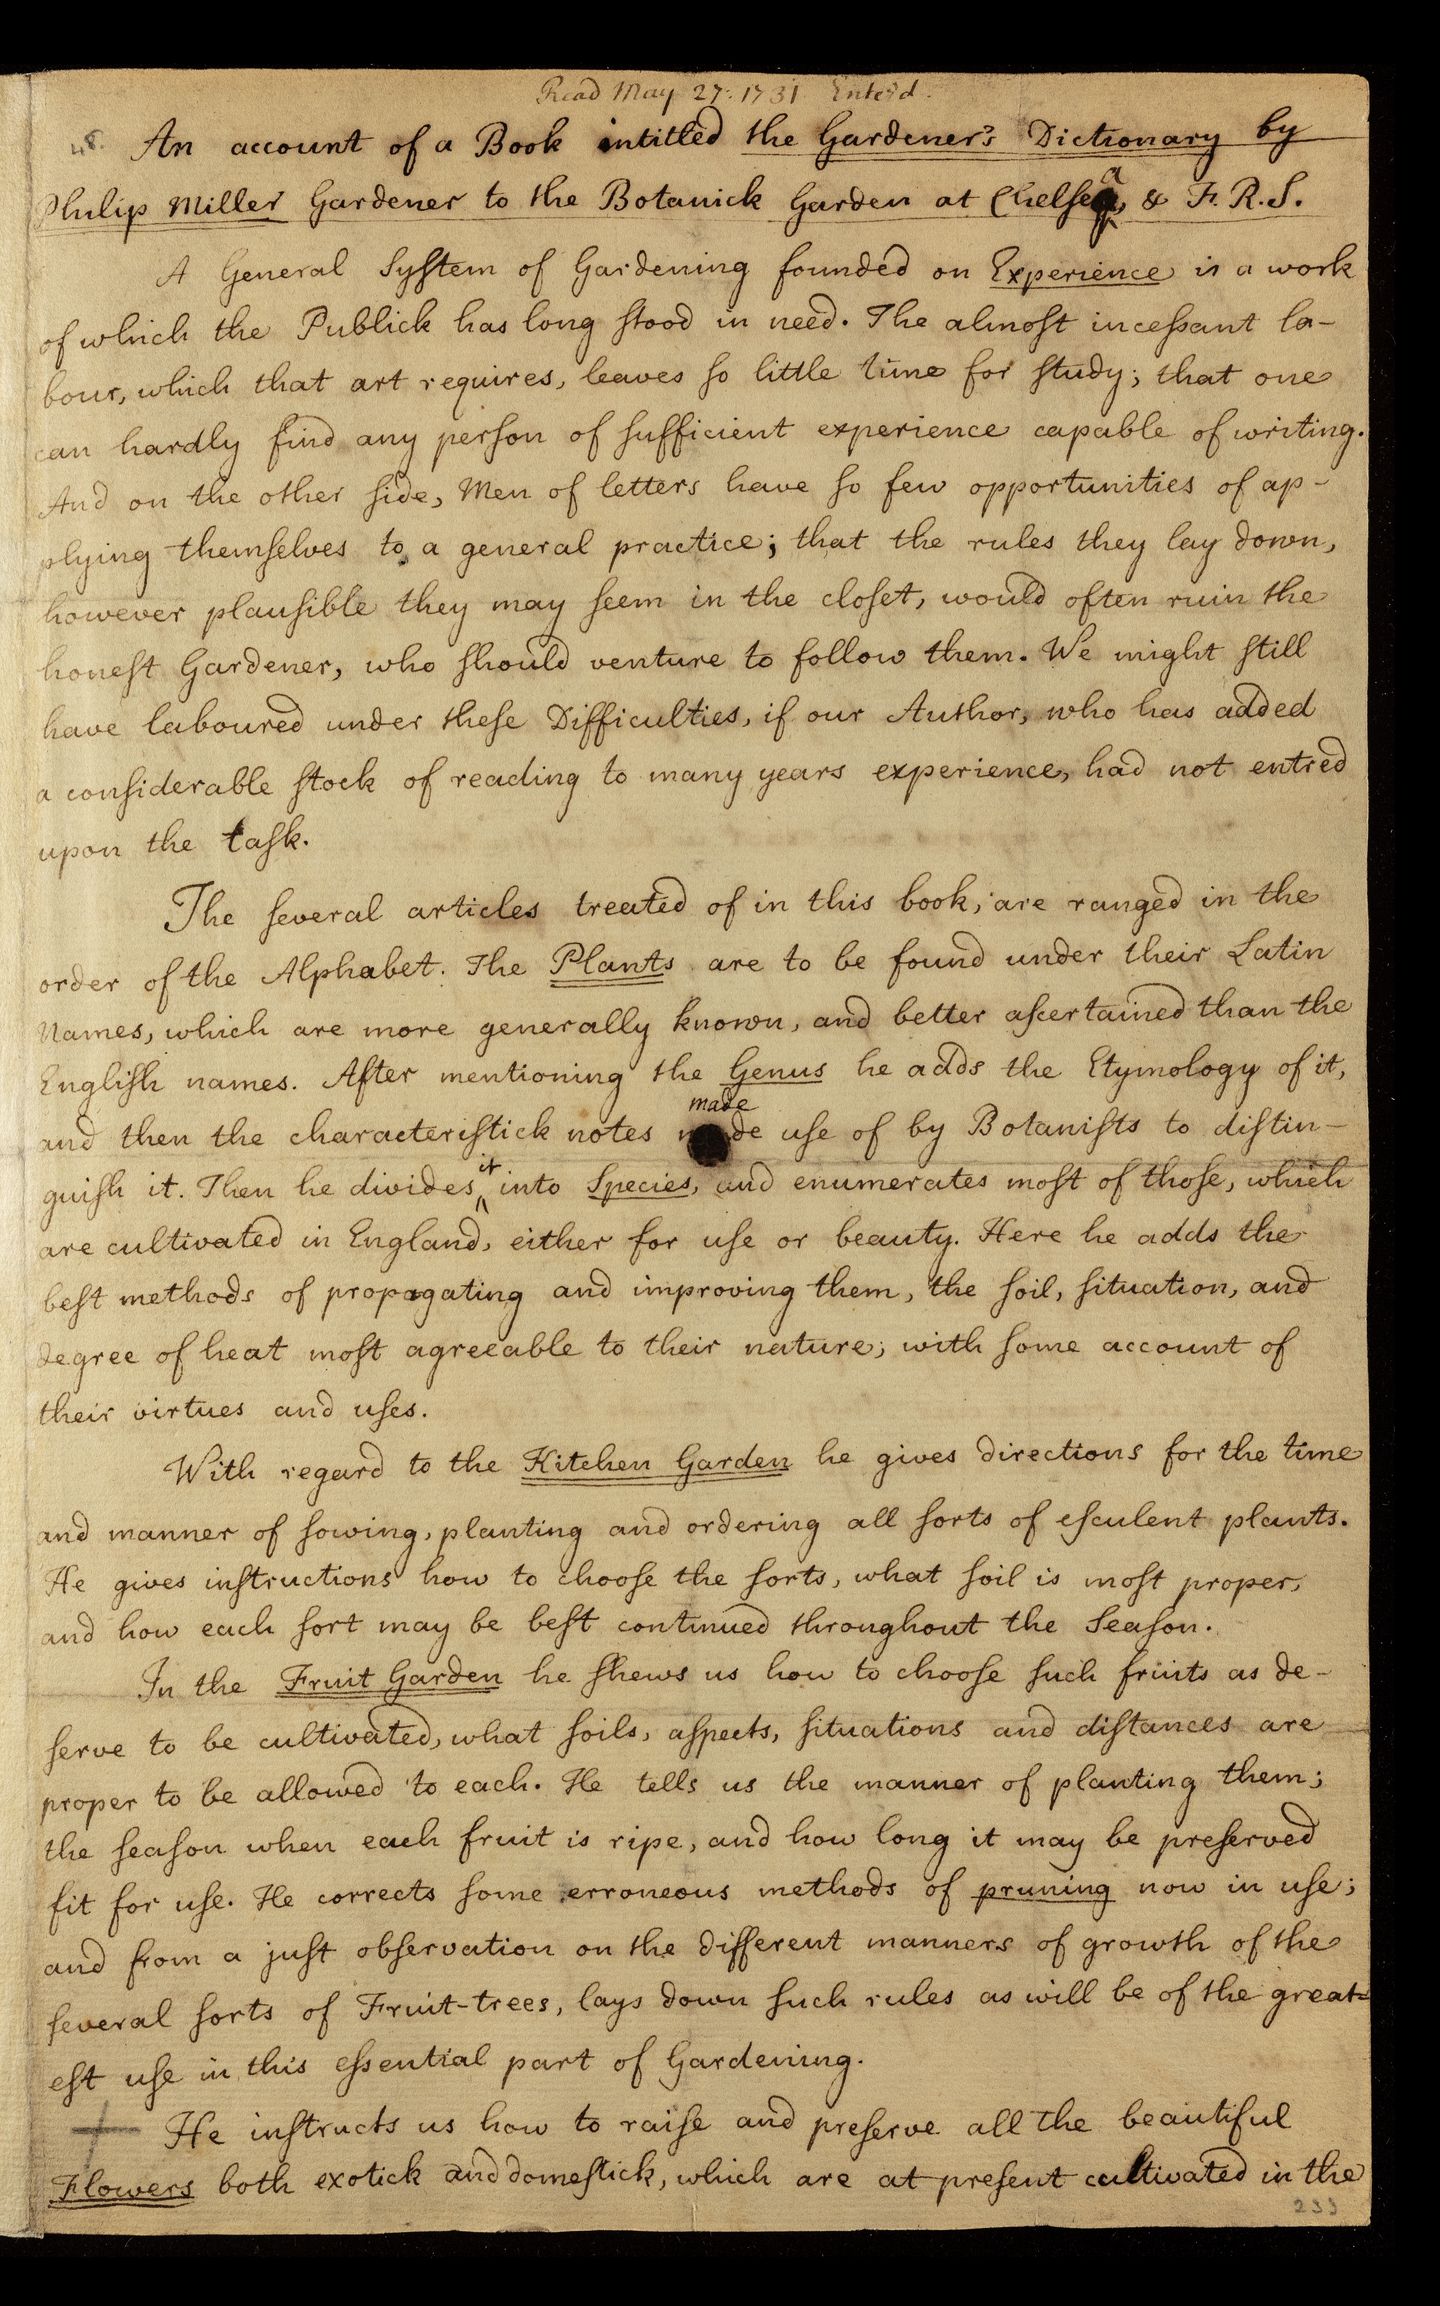 Read May 27. 1731 Enter'd.
48. An account of a Book intitled the Gardener's Dictionary by
Philip Miller Gardener to the Botanick Garden at Chelsea, & F. R. S.
A General System of Gardening founded on Experience is a work
of which the Publick has long stood in need. The almost incessant la-
bour, which that art requires, leaves so little time for study; that one
can hardly find any person of sufficient experience capable of writing.
And on the other side, Men of letters have so few opportunities of ap-
plying themselves to a general practice; that the rules they lay down,
however plausible they may seem in the closet, would often ruin the
honest Gardener, who should venture to follow them. We might still
have laboured under these Difficulties, if our Author, who has added
a considerable stock of reading to many years experience, had not entred
upon the task.
The several articles treated of in this book, are ranged in the
order of the Alphabet. The Plants are to be found under their Latin
Names, which are more generally known, and better ascertained than the
English names. After mentioning the Genus he adds the Etymology of it,
made
and then the characteristick notes made use of by Botanists to distin-
guish it. Then he divides it into Species, and enumerates most of those, which
are cultivated in England, either for use or beauty. Here he adds the
best methods of propagating and improving them, the soil, situation, and
degree of heat most agreeable to their nature; with some account of
their virtues and uses.
With regard to the Kitchen Garden he gives directions for the time
and manner of sowing, planting and ordering all sorts of esculent plants.
He gives instructions how to choose the sorts, what soil is most proper,
and how each sort may be best continued throughout the Season.
In the Fruit Garden he shews us how to choose such fruits as de-
serve to be cultivated, what soils, aspects, situations and distances are
proper to be allowed to each. He tells us the manner of planting them;
the season when each fruit is ripe, and how long it may be preserved
fit for use. He corrects some erroneous methods of pruning now in use;
and from a just observation on the different manners of growth of the
several sorts of Fruit-trees, lays down such rules as will be of the great=
est use in this essential part of Gardening.
He instructs us how to raise and preserve all the beautiful
Flowers both exotick and domestick, which are at present cultivated in the
233